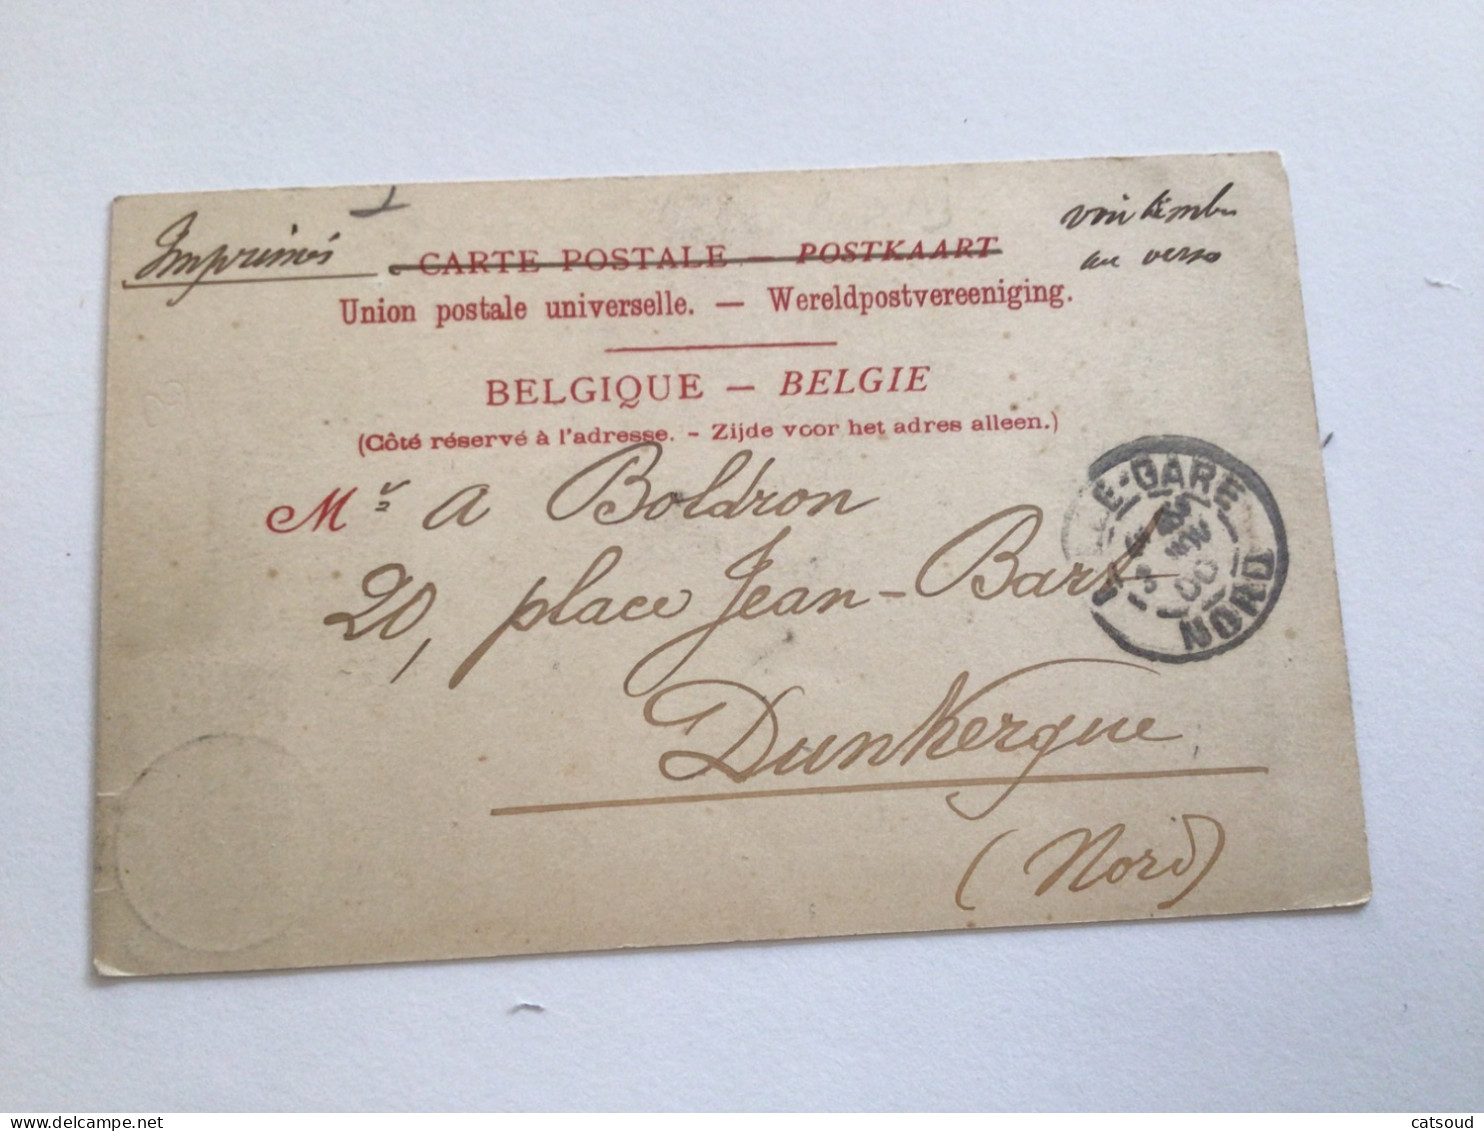 Imprimés
voir timbre
au verso
CARTE POSTALE — POSTKAART
Union postale universelle. — Wereldpostvereeniging.
BELGIQUE — BELGIE
(Côté réservé à l'adresse. - Zijde voor het adres alleen.)
Mr A Boldron
20, place Jean-Bart
Dunkerque
(Nord)
E-GARE
NORD
catsoud